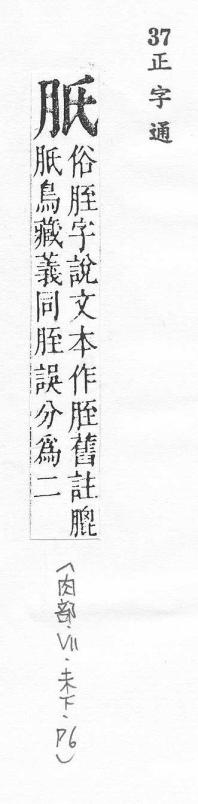 37 正字通
胝
俗胵字說文本作胵舊註膍
胝鳥藏義同胵誤分為二
（肉部·VII·未下·P6）